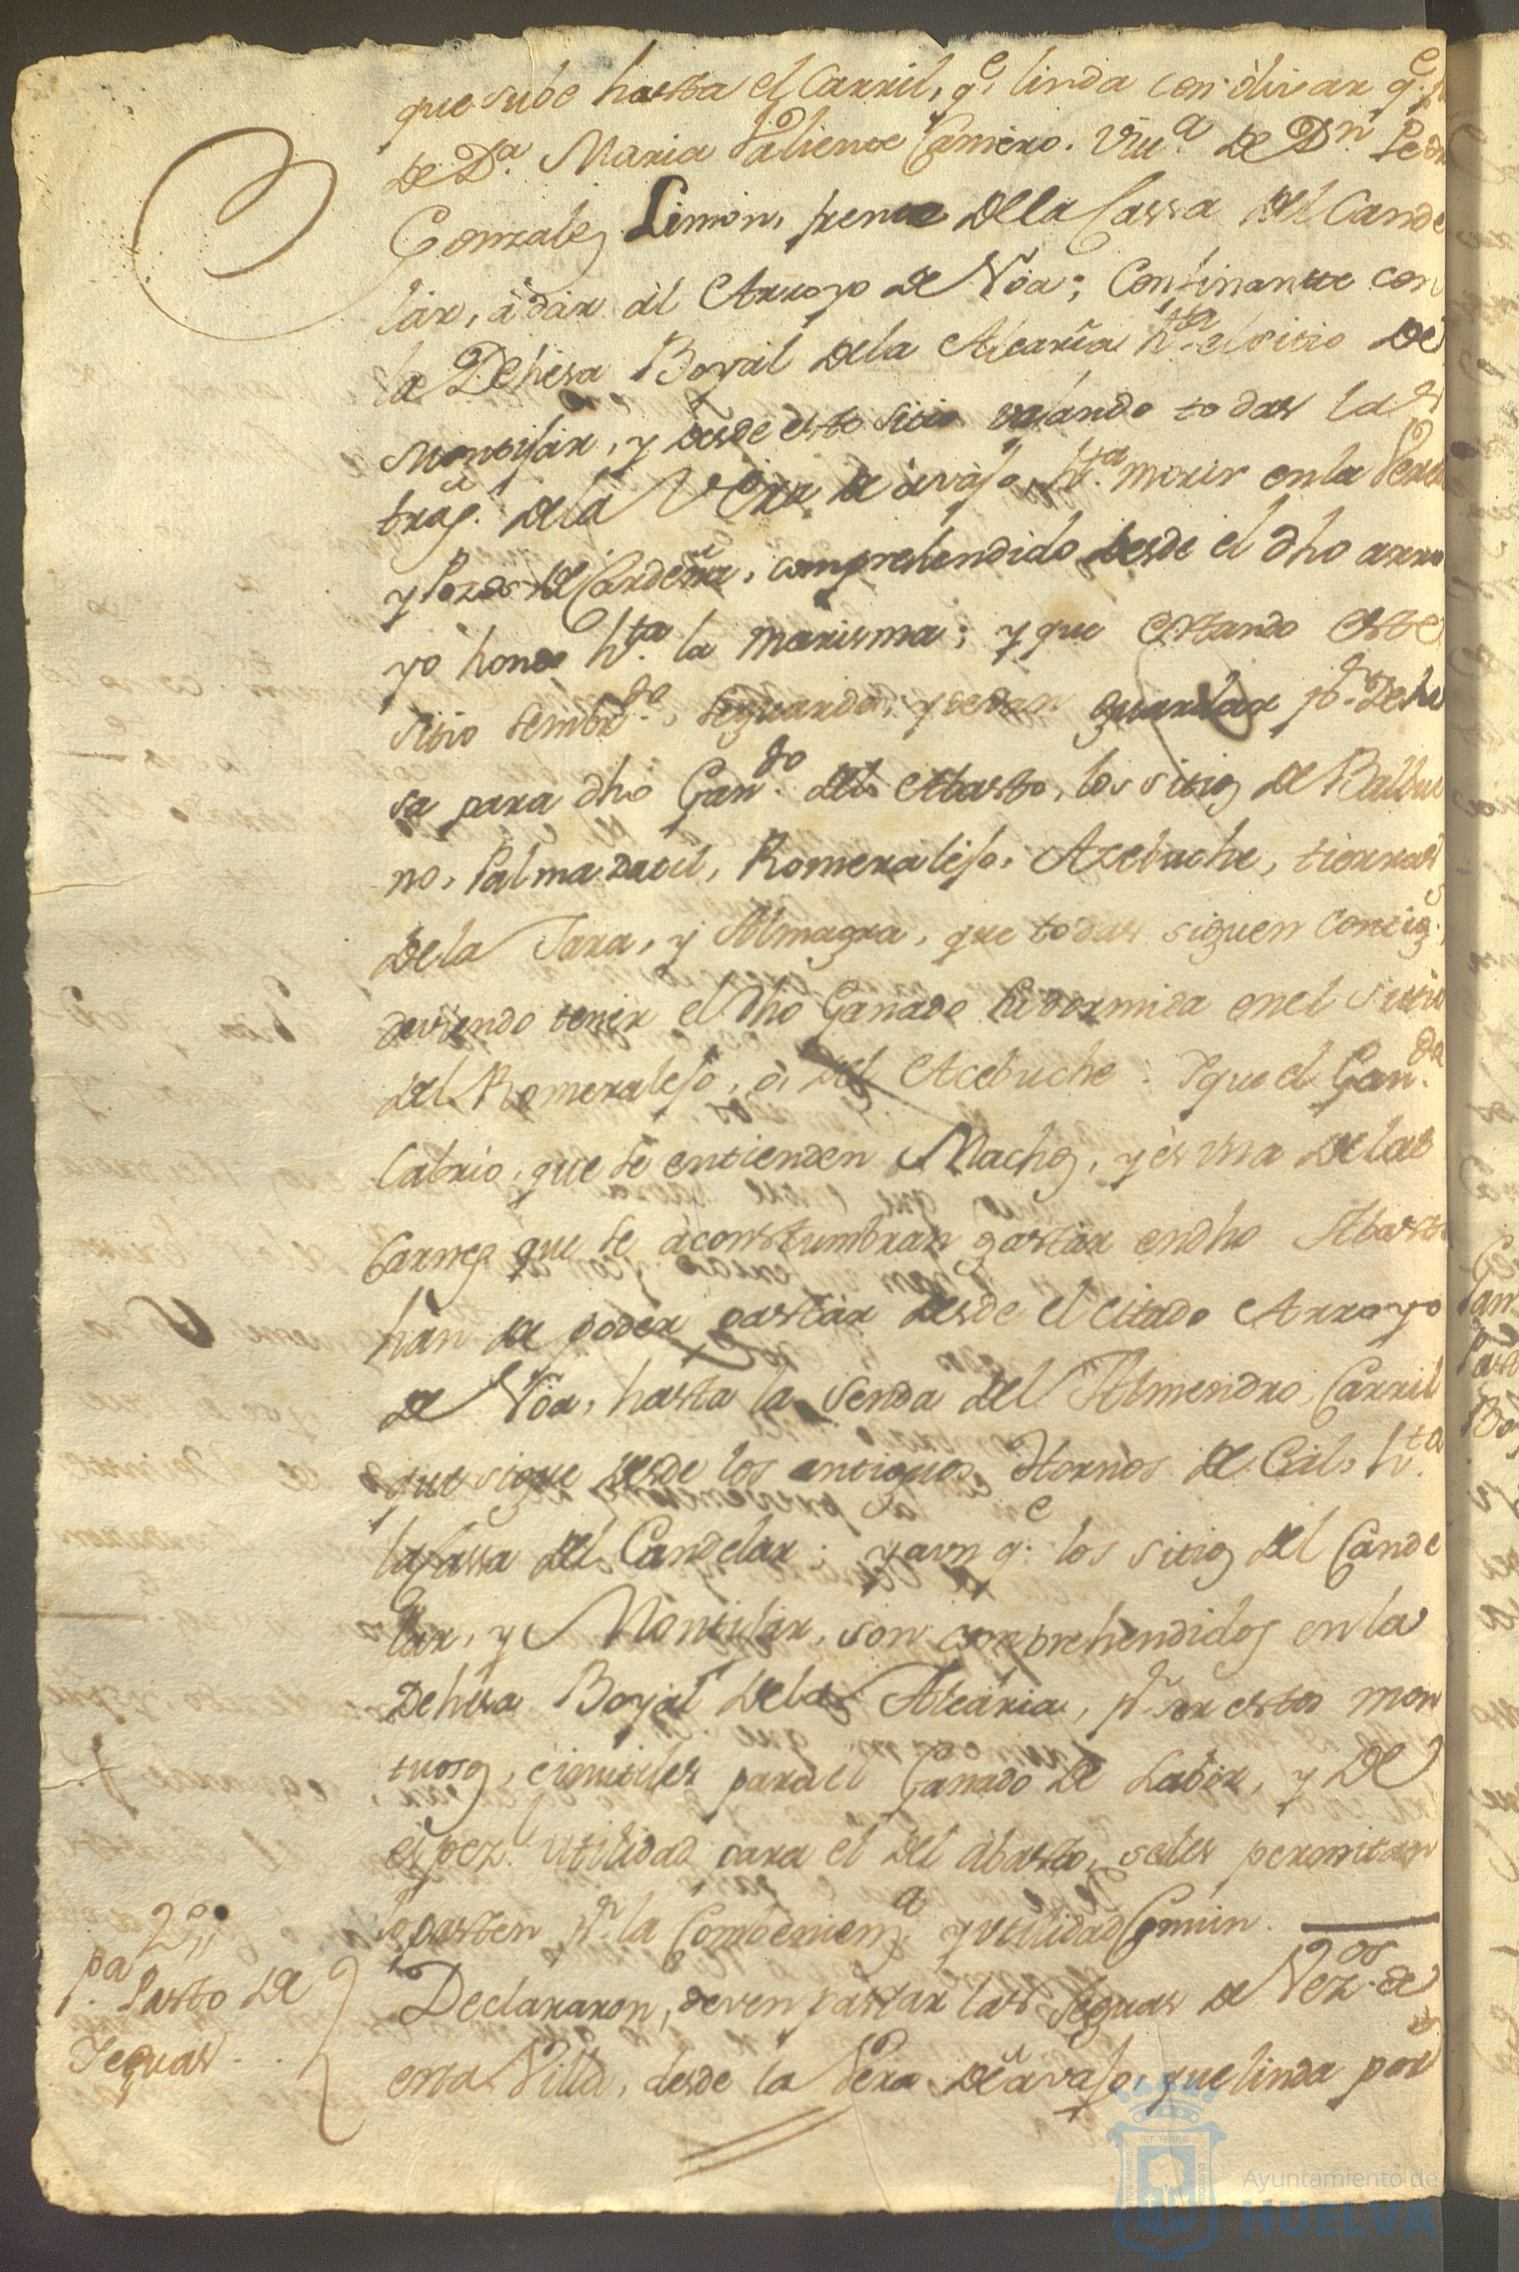 que sube hasta el Carril, q.e linda con olivar q.e
de D.a Maria Valiente Camero. Viu.a de D.n Pedro
Gonzalez Limon, frente de la Cassa del Cande
lar, à dar àl Arroyo de Nòa; Confinante con
la Dehesa Boyàl de la Alcaria h.ta el sitio de
Montijàr, y desde este sitio vajando todas las
de la Vera de avajo, h.ta morir en la Vereda
y Pozos de Cardeña, comprehendido desde el dho arro
yo hondo h.ta la marisma; y que estando este
sitio sembr.do, seguarda, y sedan guardar p.r Dehe
sa para dho Gan.do del Abasto, los sitios de Balbue
no, Palma datil, Romeralejo, Azebuche, tierras
de la Jara, y Almagra, que todas siguen contig.s
deviendo tener el dho Ganado su dormida en el sitio
del Romeralejo, ò, del Acebuche: Y que el Gan.do
Cabrio, que se entienden Machos, y es vna de las
Carnes que se àconstumbran gastàr endho Abasto
hàn de poder pastàr desde el citado Arroyo
de Nòa, hasta la Senda del Almendro, Carril
que sigue desde los antiguos Hornos de Càl, h.ta
la Cassa del Candelar: y aun q.e los sitios del Cande
lar, y Montijàr, son comprehendidos en la
Dehesa Boyàl de la Alcaria, p.r ser estos mon
tuosos, è inutiles para el Ganado de Labòr, y de
espez.l utilidad para el del àbasto, seles permitan
lo pasten p.r la Combenienz.a y vtilidad Comùn.
2.o
pa. Pasto de
Yeguas
Declararon, deven pastar las Yeguas de Vez.os de
esta Villa, desde la Vera de avajo, que linda por
Ayuntamiento de
HUELVA